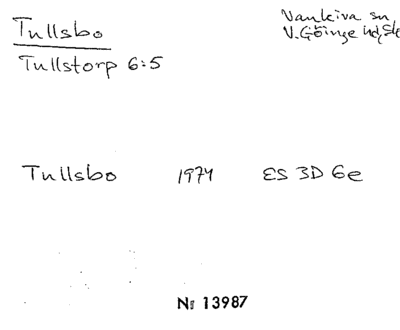 Tullsbo
Vankiva sn
V. Göinge hd, Sk
Tullstorp 6:5
Tullsbo 1974 ES 3D 6e
Nº 13987